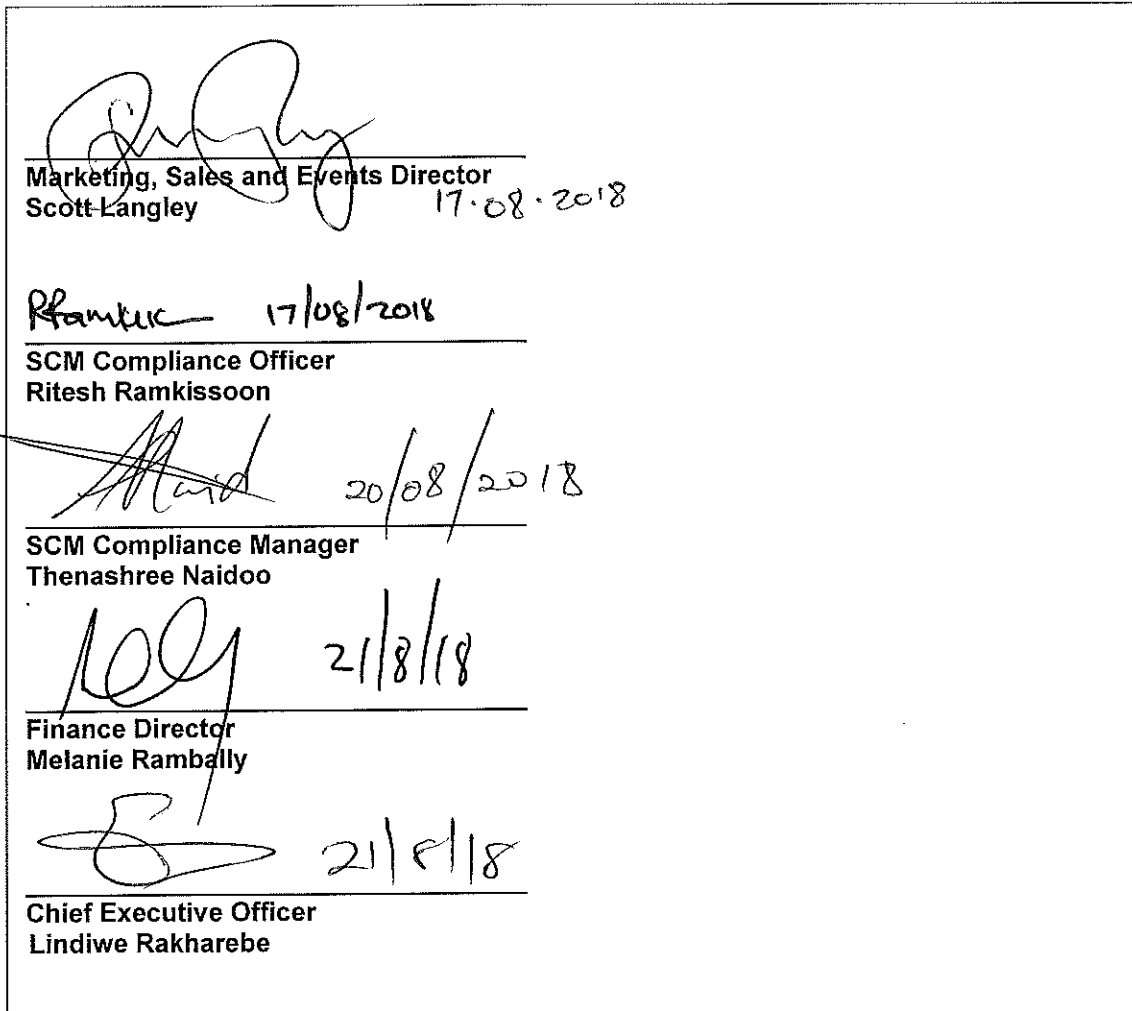 Marketing, Sales and Events Director
Scott Langley 17.08.2018
17/08/2018
SCM Compliance Officer
Ritesh Ramkissoon
20/08/2018
SCM Compliance Manager
Thenashree Naidoo
21/8/18
Finance Director
Melanie Rambally
21/8/18
Chief Executive Officer
Lindiwe Rakharebe